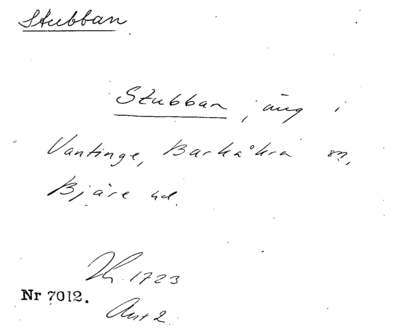 Stubban
Stubban, äng i
Vantinge, Barkåkra sn,
Bjäre hd.
1723
Nr 7012.
Akt 2.